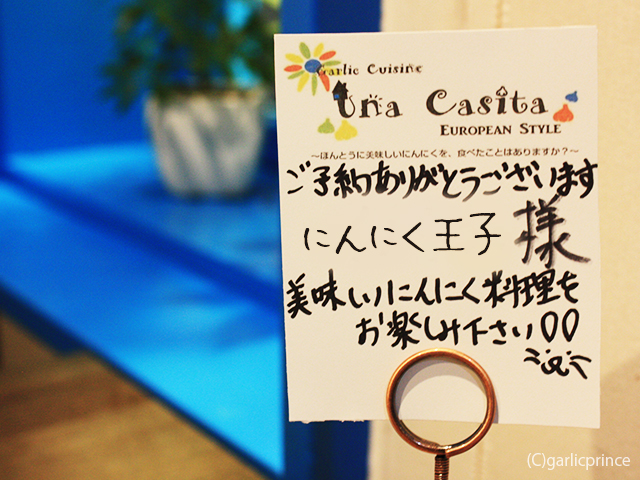 Garlic Cuisine
Una Casita
EUROPEAN STYLE
～ほんとうに美味しいにんにくを、食べたことはありますか？～
ご予約ありがとうございます
にんにく王子 様
美味しいにんにく料理を
お楽しみ下さい
(C)garlicprince